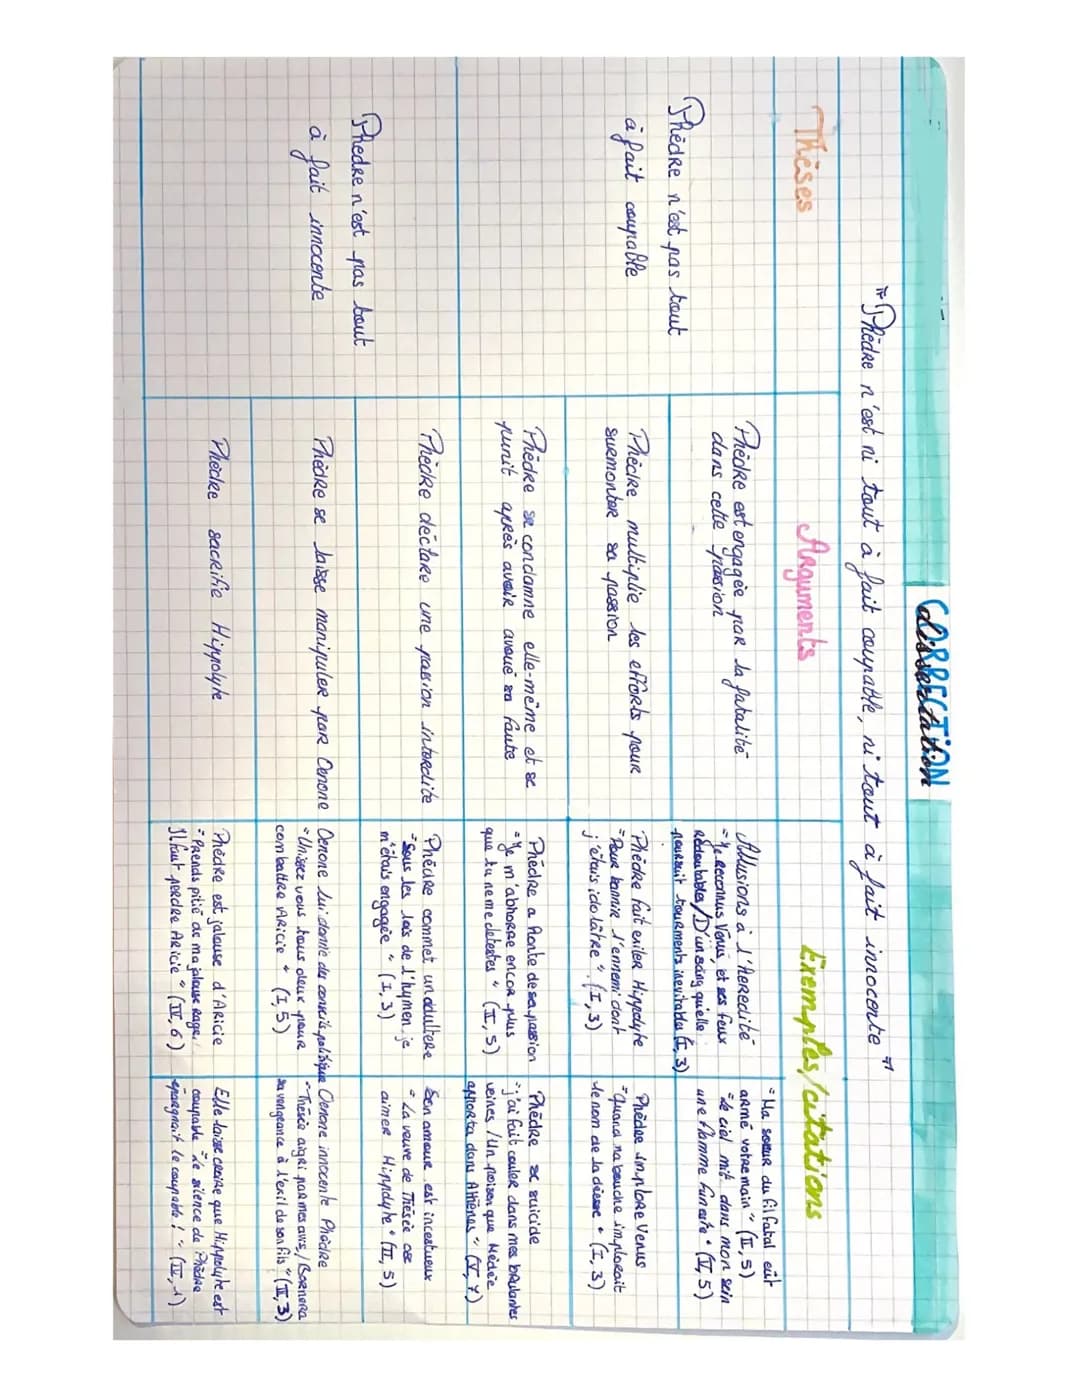 CORRECTION
dissertation
"Phèdre n'est ni tout à fait coupable, ni tout à fait innocente"
Thèses
Arguments
Exemples/citations
Phèdre n'est pas tout
à fait coupable
Phèdre est engagée par la fatalité
dans cette passion
Allusions à l'hérédité
"Je reconnus Vénus, et ses feux
redoutables/D'un sang qu'elle
poursuit tourments inévitables (I, 3)
"Ma soeur du fil fatal eût
armé votre main" (II, 5)
"Le ciel mit dans mon sein
une flamme funeste" (II, 5)
Phèdre multiplie les efforts pour
surmonter sa passion
Phèdre fait exiler Hippolyte
"Pour bannir l'ennemi dont
j'étais idolâtre". (I, 3)
Phèdre implore Venus
"Quand ma bouche implorait
le nom de la déesse" (I, 3)
Phèdre se condamne elle-même et se
punit après avoir avoué sa faute
Phèdre a honte de sa passion
"Je m'abhorre encor plus
que tu ne me detestes" (II, 5)
Phèdre se suicide
"j'ai fait couler dans mes brulantes
veines/Un poison que Médée
apporta dans Athènes" (V, 7)
Phèdre n'est pas tout
à fait innocente
Phèdre déclare une passion interdite
Phèdre commet un adultère
"Sous les lois de l'hymen je
m'étais engagée" (I, 3)
Son amour est incestueux
"La veuve de Thésée ose
aimer Hippolyte" (II, 5)
Phèdre se laisse manipuler par Oenone
Oenone lui donne des conseils politique
"Unissez vous tous deux pour
combattre Aricie" (I, 5)
Oenone innocente Phèdre
"Thésée aigri par mes avis,/Bornera
sa vengeance à l'exil de son fils" (III, 3)
Phèdre sacrifie Hippolyte
Phèdre est jalouse d'Aricie
"Prends pitié de ma jalouse rage.
Il faut perdre Aricie" (IV, 6)
Elle laisse croire que Hippolyte est
coupable "Le silence de Phèdre
épargnait le coupable !" (IV, 1)